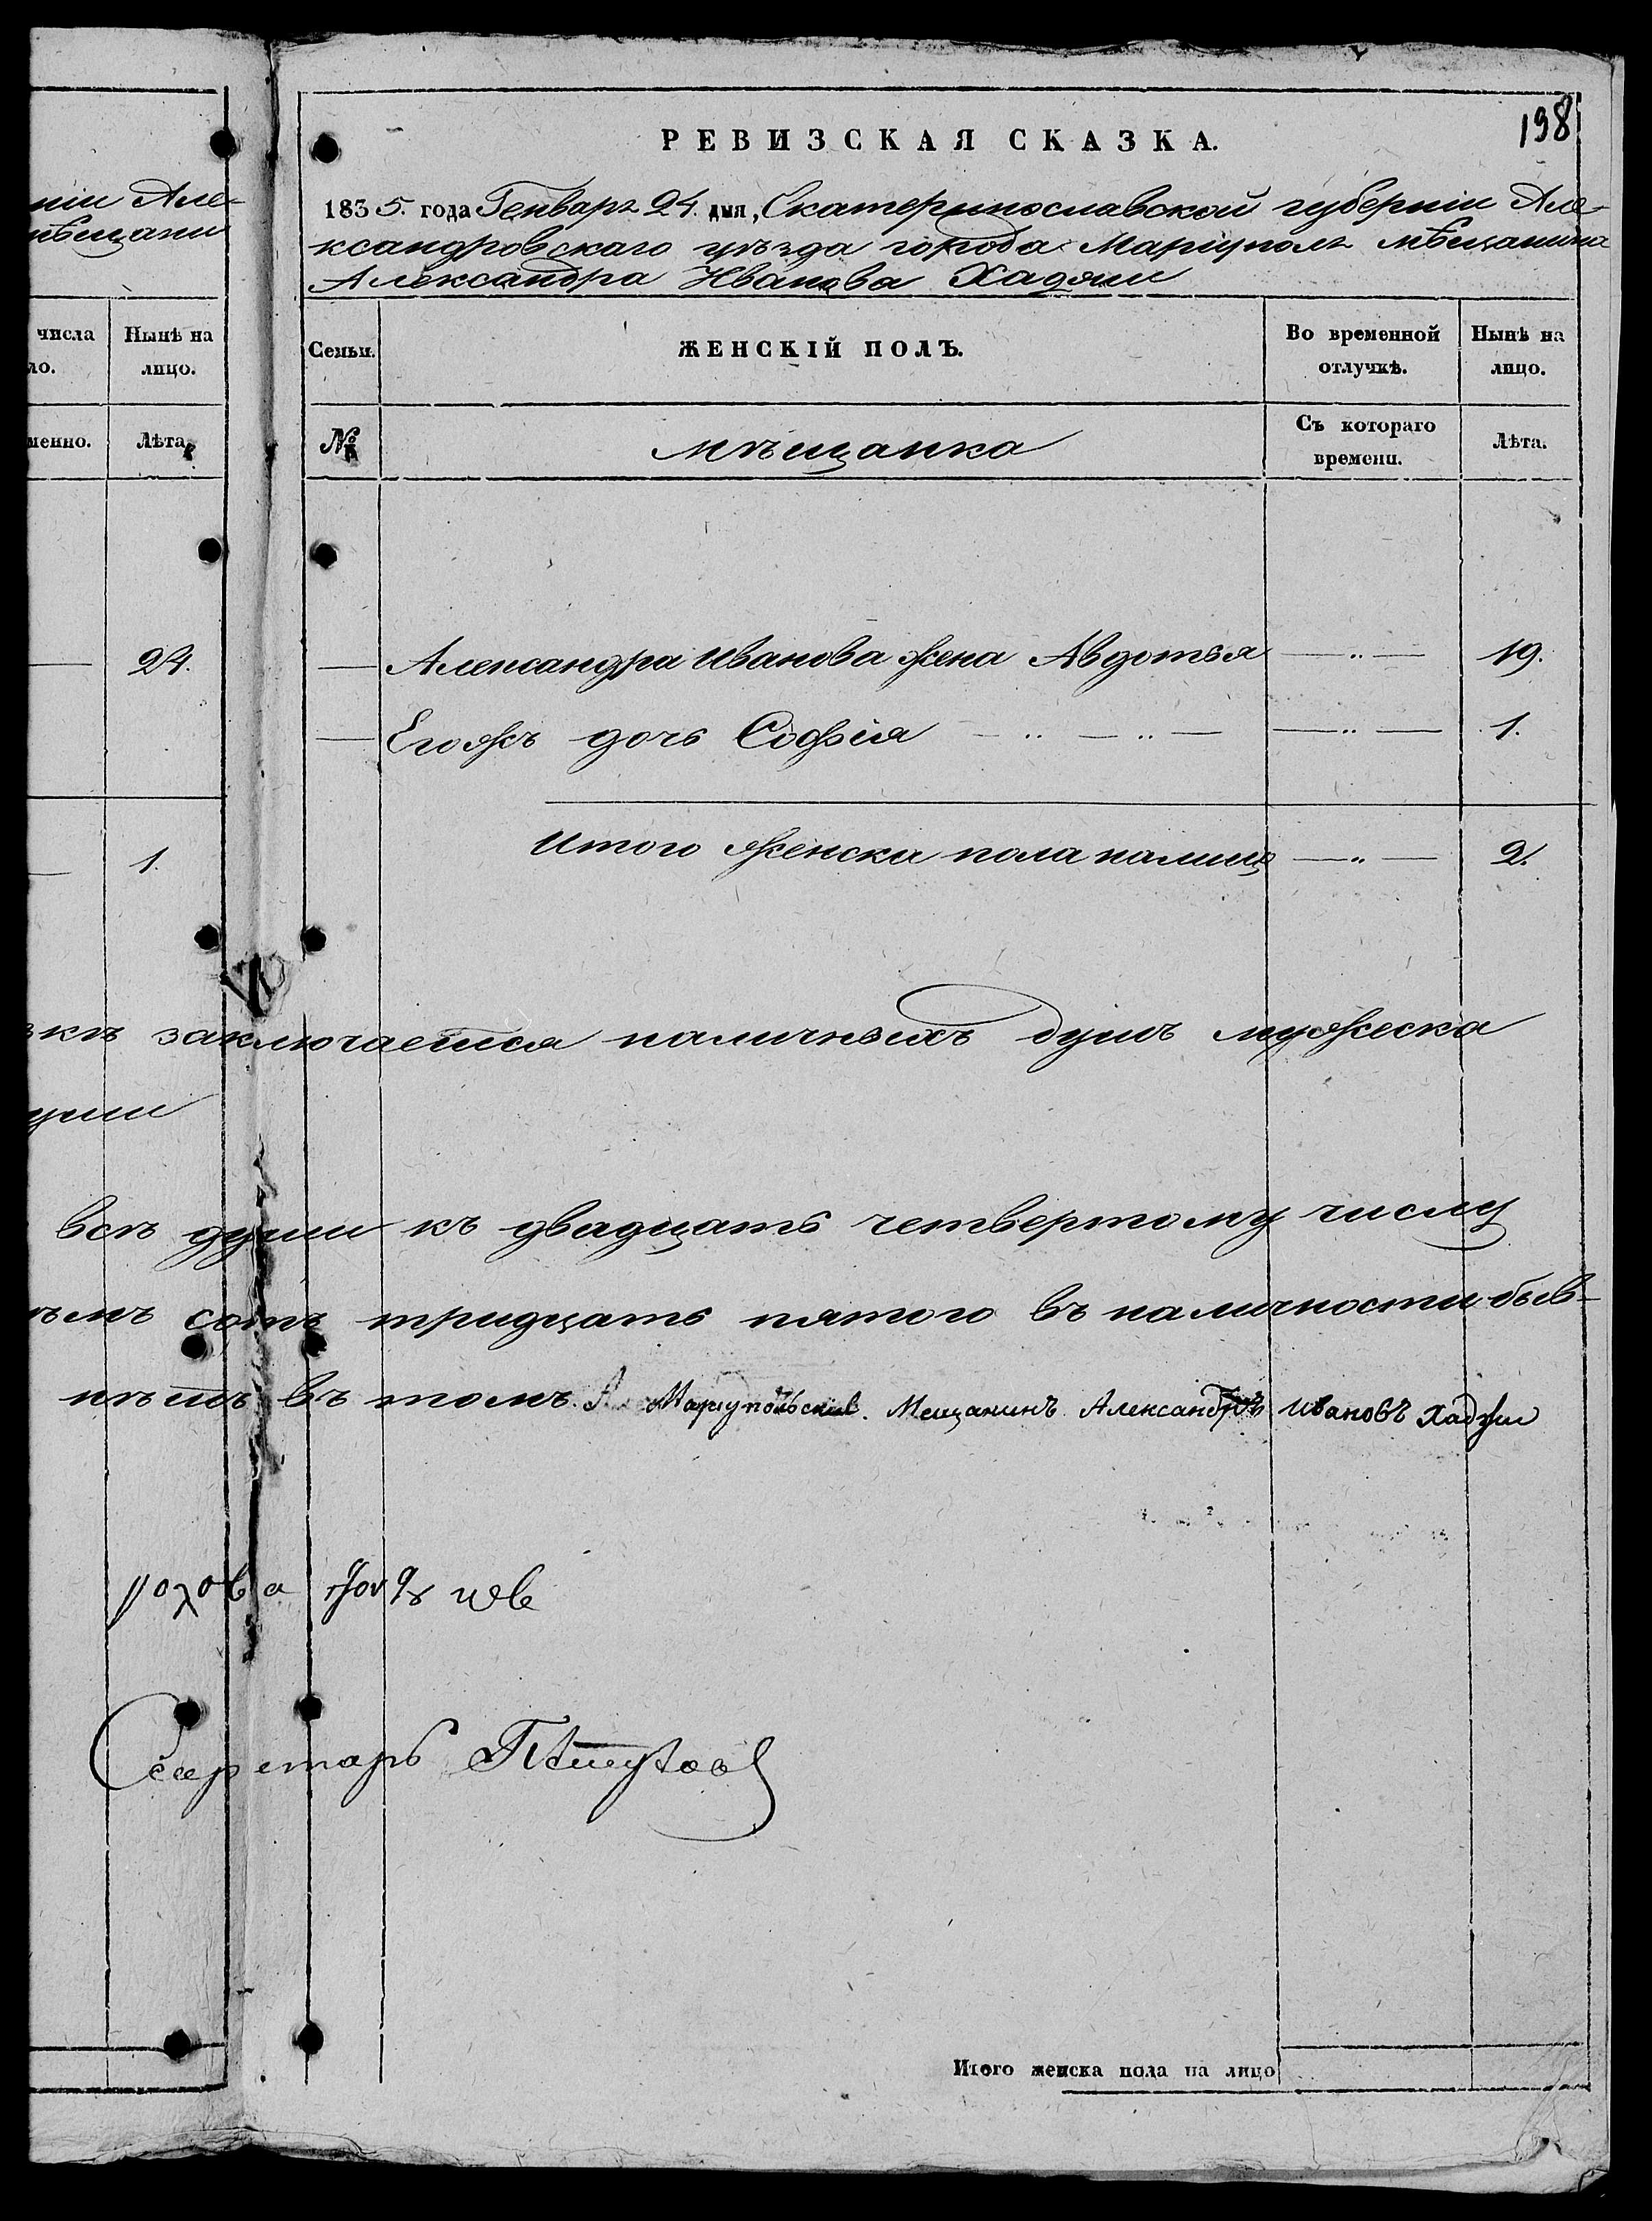 198
РЕВИЗСКАЯ СКАЗКА.
ніи Але-
мѣщани
1835. года Генваря 24. дня, Екатеринославской губерніи Але-
ксандровскаго уѣзда города Мариуполя мѣщанина
Александра Иванова Хаджи
числа
ло.
Нынѣ на
лицо.
Семьи.
ЖЕНСКІЙ ПОЛЪ.
Во временной
отлучкѣ.
Нынѣ на
лицо.
менно.
Лѣта.
№
мѣщанка
Съ котораго
времени.
Лѣта.
24. — Александра Иванова жена Авдотья — „ — 19.
— Егожъ дочь Софія — „ — „ — — „ — 1.
1. Итого женска пола налицо — „ — 2.
зкѣ заключается наличныхъ душъ мужеска
уши
всѣ души къ двадцать четвертому числу
ьмъ сотъ тридцать пятого въ наличности быв-
нѣтъ въ томъ. Мариупольскій. Мещанинъ Александръ Ивановъ Хаджи
Секретарь
Итого женска пола на лицо